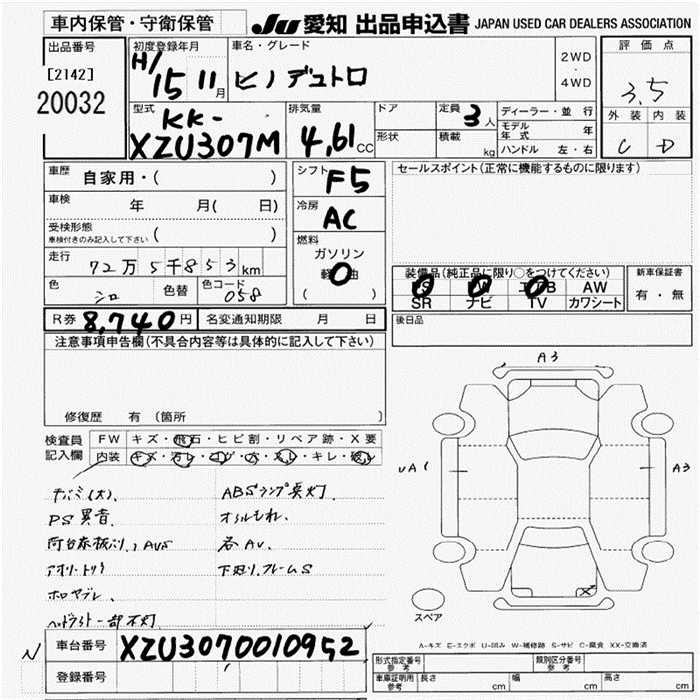 車内保管・守衛保管
JU 愛知 出品申込書 JAPAN USED CAR DEALERS ASSOCIATION
出品番号
[2142]
20032
初度登録年月
H/15 11月
車名・グレード
ヒノ デュトロ
2WD
・
4WD
評価点
3.5
外装 内装
C D
型式
KK-
XZU307M
排気量
4.61 CC
ドア
形状
定員 3人
積載 kg
ディーラー・並行
モデル年式 年
ハンドル 左・右
車歴 自家用・( )
車検 年 月( 日)
受検形態
車検付きのみ記入して下さい ( )
走行 72万5千853km
色 シロ 色替 色コード 058
シフト F5
冷房 AC
燃料
ガソリン
軽油
( )
セールスポイント(正常に機能するものに限ります)
装備品(純正品に限り○をつけてください)
PS PW エアB AW
SR ナビ TV カワシート
新車保証書
有・無
R券 8,740円 名変通知期限 月 日
後日品
注意事項申告欄(不具合内容等は具体的に記入して下さい)
修復歴 有 (箇所
検査員
記入欄
FW キズ・飛石・ヒビ割・リペア跡・X要
内装 キズ・汚レ・コゲ・穴・スレ・キレ・破レ
PS異音
ABSランプ点灯
オイルもれ、
ホロヤブレ
ヘッドライト一部不灯
下廻リ、フレームS
A3
UA1
A3
X
スペア
N
車台番号 XZU3070010952
登録番号
A-キズ E-エクボ U-凹み W-補修跡 S-サビ C-腐食 XX-交換済
形式指定番号参考
類別区分番号参考
車庫証明用参考 長さ cm 幅 cm 高さ cm